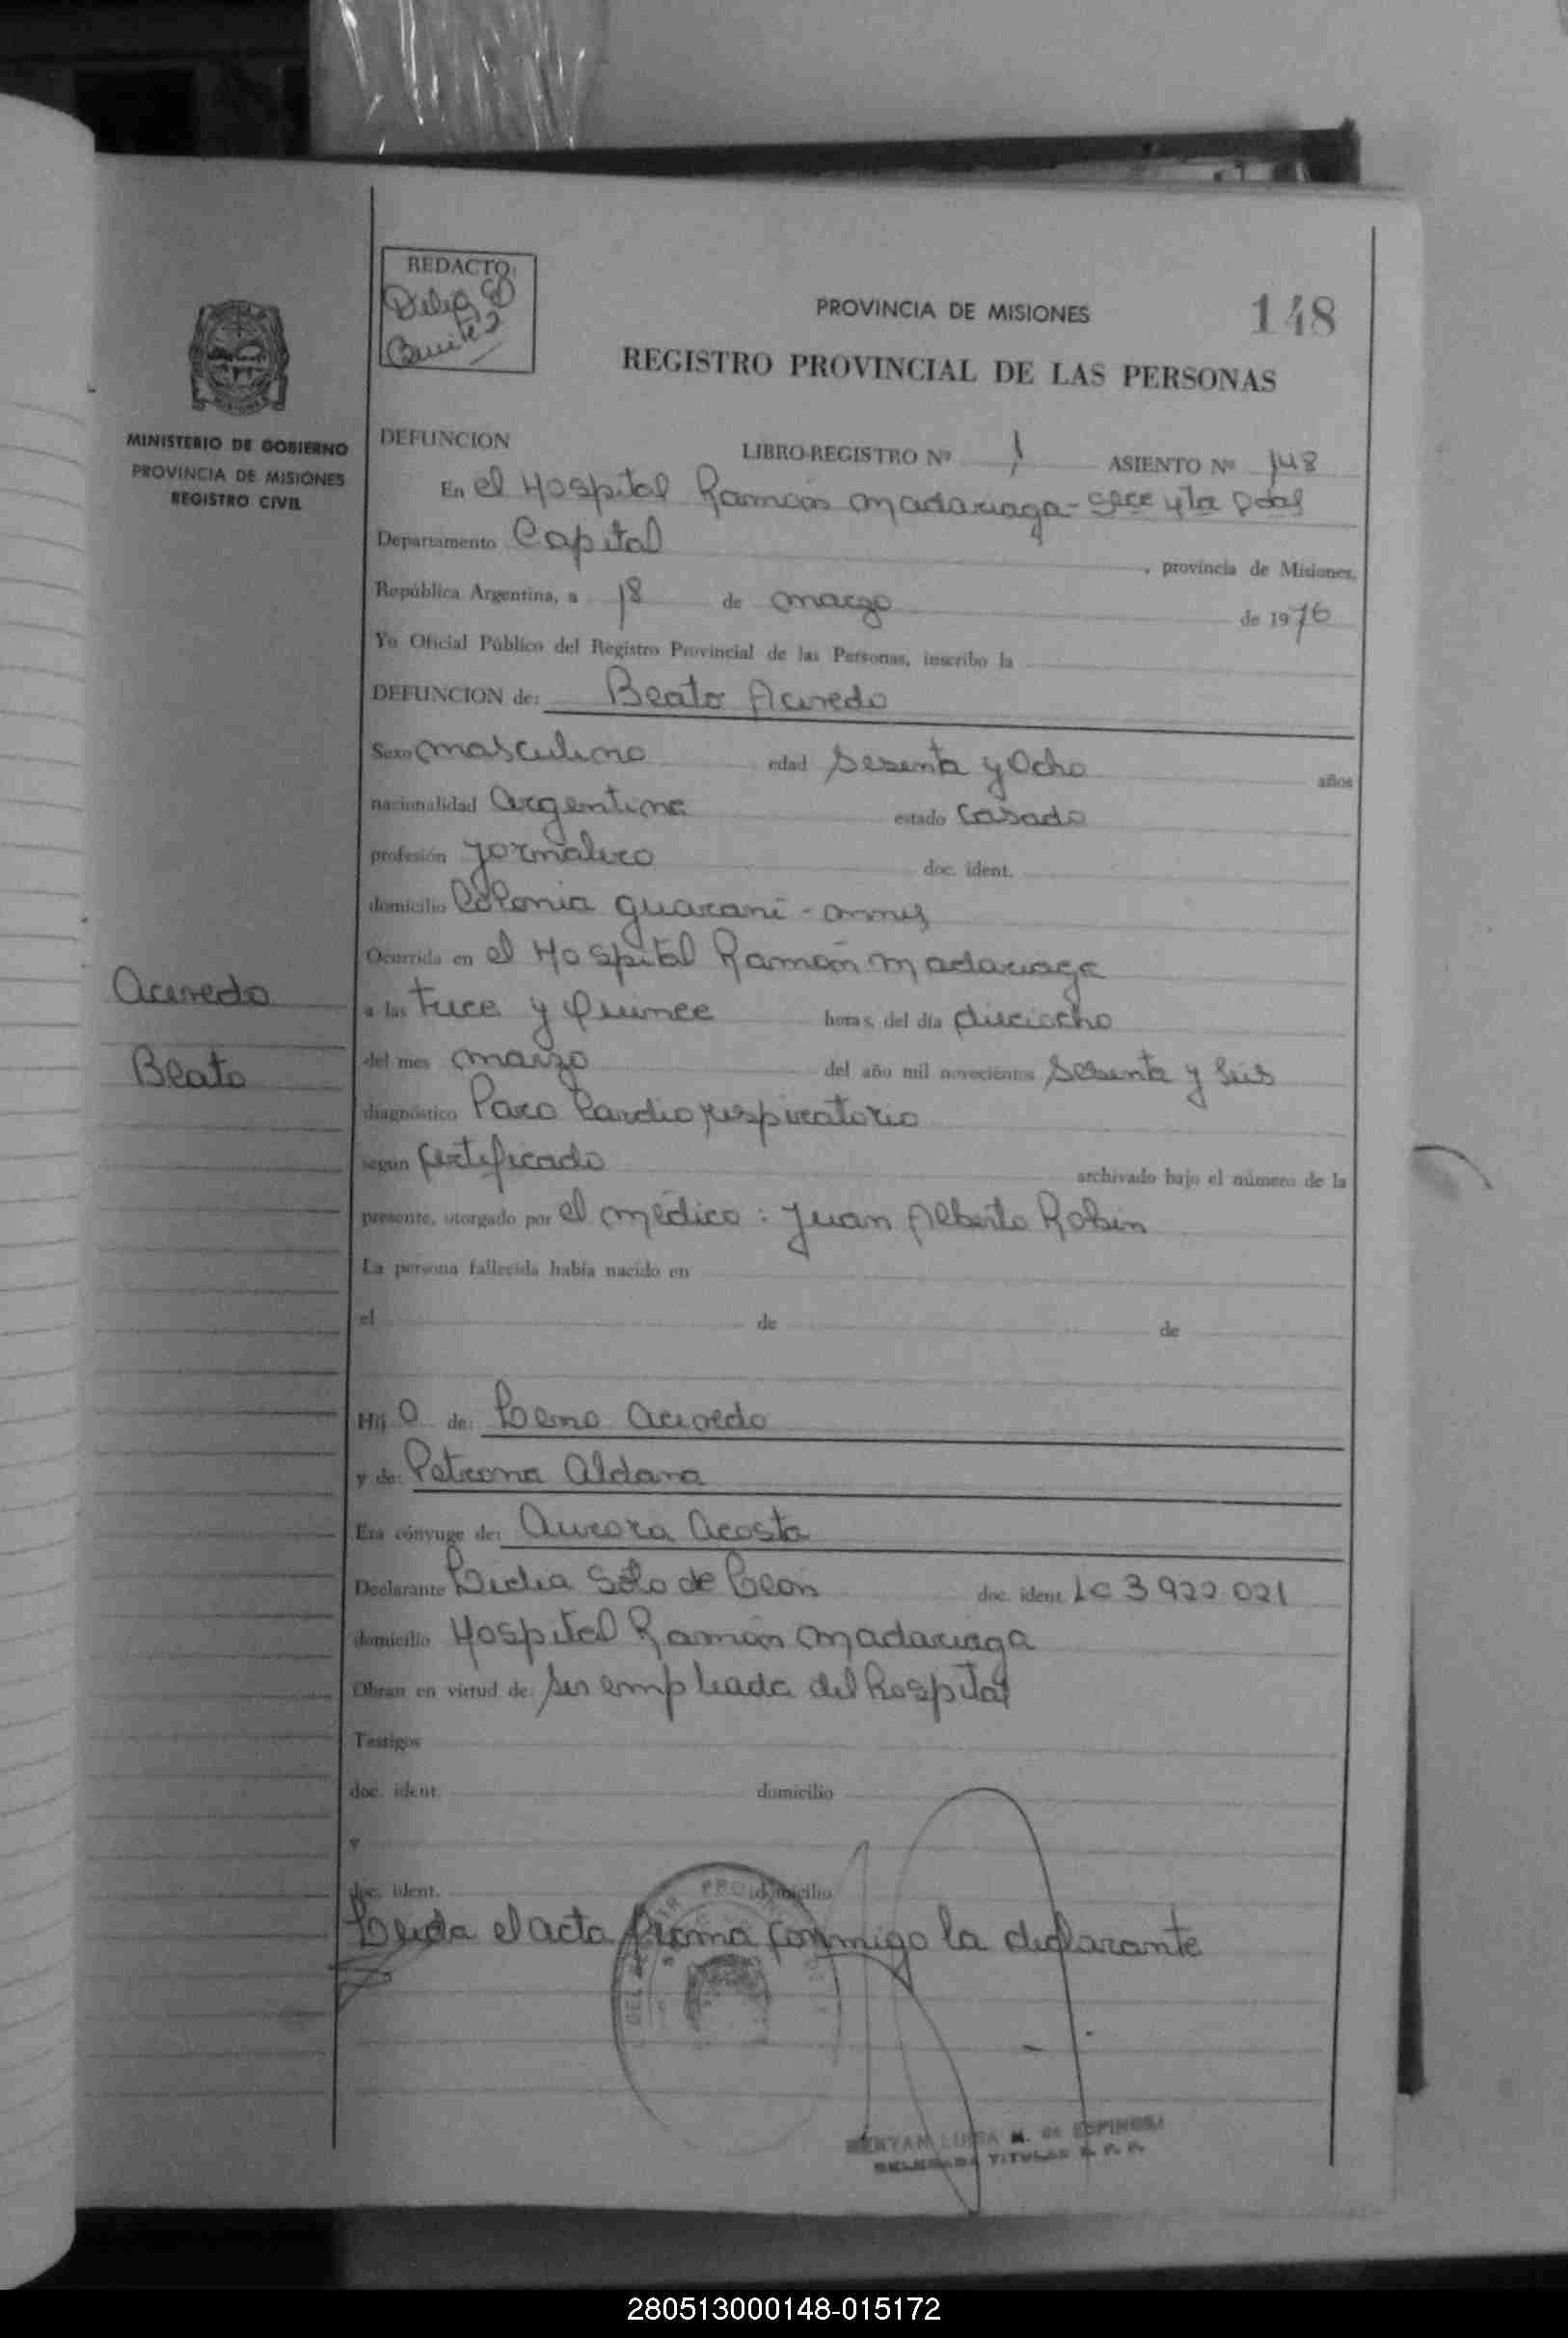 REDACTO:
Delia
Benitez
PROVINCIA DE MISIONES
148
REGISTRO PROVINCIAL DE LAS PERSONAS
MINISTERIO DE GOBIERNO
PROVINCIA DE MISIONES
REGISTRO CIVIL
DEFUNCION LIBRO-REGISTRO Nº 1 ASIENTO Nº 148
En el Hospital Ramón Madariaga -
Departamento Capital , provincia de Misiones,
República Argentina, a 18 de marzo de 1976
Yo Oficial Público del Registro Provincial de las Personas, inscribo la
DEFUNCION de: Beato Acevedo
Sexo masculino edad sesenta y ocho años
nacionalidad argentina estado casado
profesión jornalero doc. ident.
domicilio Colonia guarani -
Ocurrida en el Hospital Ramón Madariaga
Acevedo
a las trece y quince horas, del día dieciocho
Beato
del mes marzo del año mil novecientos sesenta y seis
diagnóstico Paro Cardio respiratorio
según certificado archivado bajo el número de la
presente, otorgado por el médico: Juan Alberto Robin
La persona fallecida había nacido en
el de de
Hij o de: Acevedo
y de: Petrona Aldana
Era cónyuge de: Aurora Acosta
Declarante Lidia Soto de Leon doc. ident. LC 3 922 021
domicilio Hospital Ramón Madariaga
Obran en virtud de: ser empleada del hospital
Testigos
doc. ident. domicilio
y
doc. ident. domicilio
Leida el acta firma conmigo la declarante
LUISA M. de ESPINOSA
DELEGADA TITULAR R. P. P.
280513000148-015172